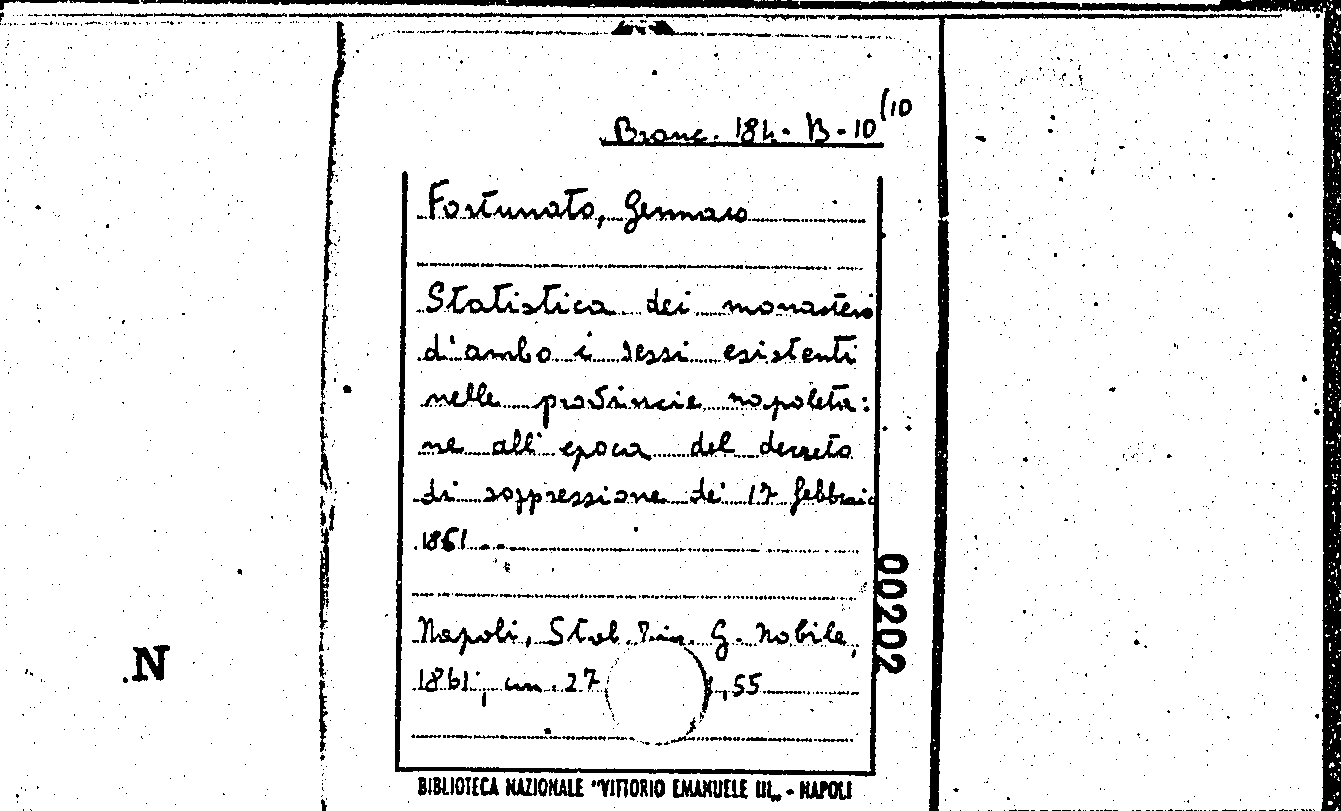 Branc. 184. B-10(10
Fortunato, Gennaro
Statistica dei monasteri
d'ambo i sessi esistenti
nelle provincie napoleta:
ne all'epoca del decreto
di soppressione dei 17 febbraio
1861
Napoli, Stab. Tip. G. Nobile,
1861, cm. 27 ,55
00202
N
BIBLIOTECA NAZIONALE "VITTORIO EMANUELE III„ - NAPOLI